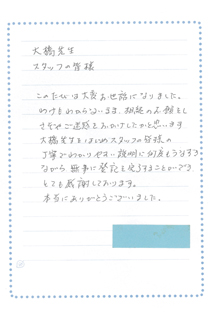 大橋先生
スタッフの皆様
このたびは大変お世話になりました。
わけもわからないまま、相続のお願いをし
さぞやご迷惑をおかけしたかと思います。
大橋先生をはじめスタッフの皆様の
丁寧でわかりやすい説明に何度もうなずき
ながら無事に登記を完了することができ
とても感謝しております。
本当にありがとうございました。